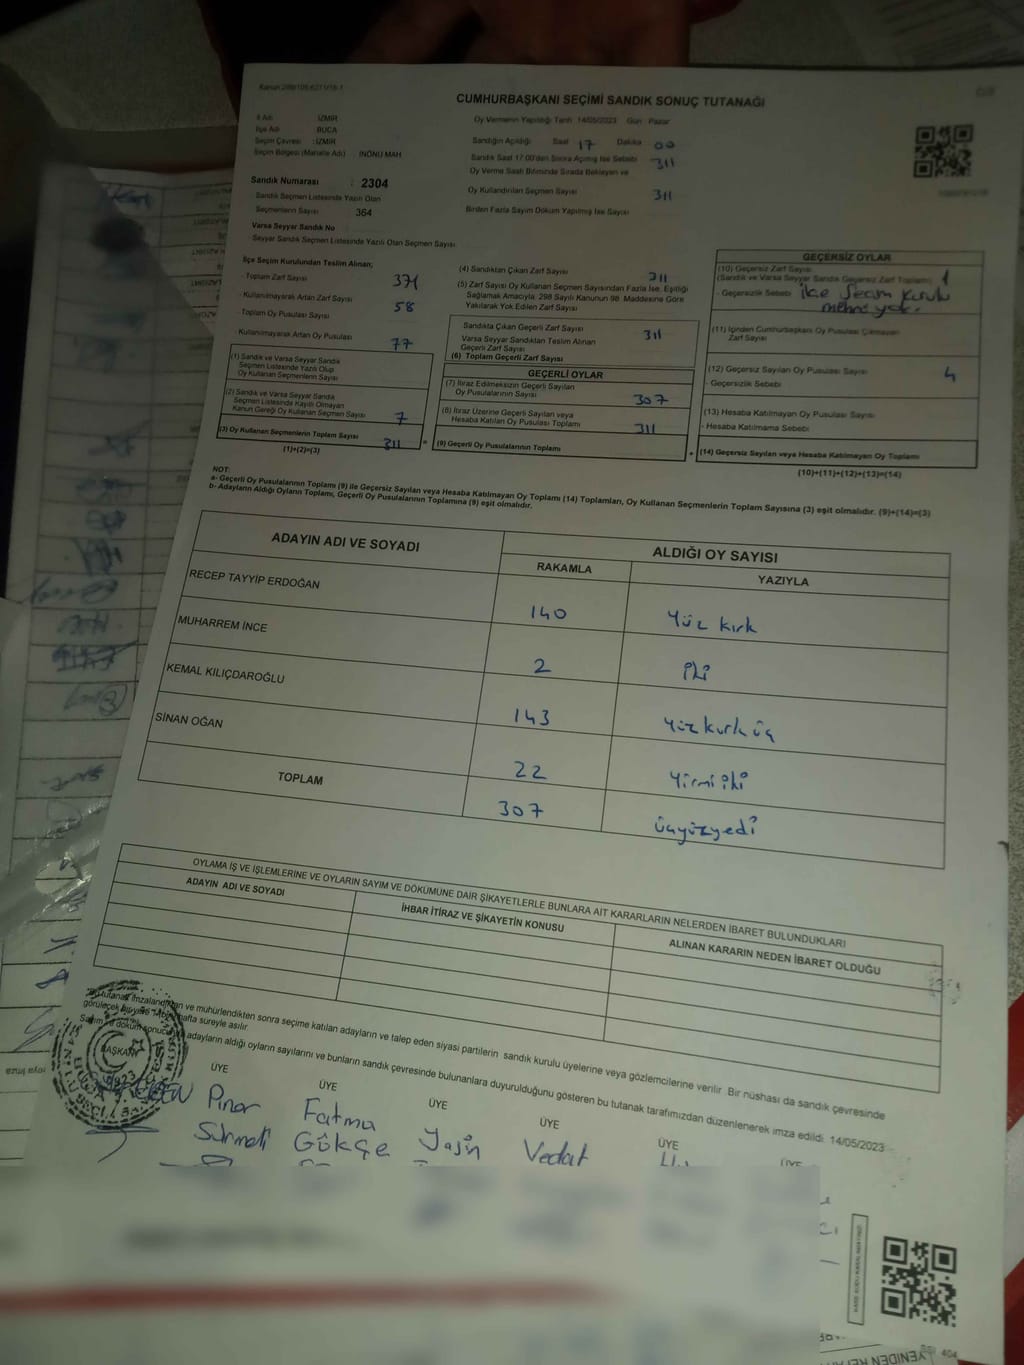 Kanun:298/105-6271/16-1
CUMHURBAŞKANI SEÇİMİ SANDIK SONUÇ TUTANAĞI
İl Adı : İZMİR
İlçe Adı : BUCA
Seçim Çevresi : İZMİR
Seçim Bölgesi (Mahalle Adı) : İNÖNÜ MAH
Oy Vermenin Yapıldığı Tarih 14/05/2023 Gün : Pazar
Sandığın Açıldığı Saat 17 Dakika 00
Sandık Saat 17.00'den Sonra Açılmış İse Sebebi
311
Oy Verme Saati Bitiminde Sırada Bekleyen ve
Oy Kullandırılan Seçmen Sayısı 311
Birden Fazla Sayım Döküm Yapılmış İse Sayısı
Sandık Numarası : 2304
Sandık Seçmen Listesinde Yazılı Olan
Seçmenlerin Sayısı 364
Varsa Seyyar Sandık No
Seyyar Sandık Seçmen Listesinde Yazılı Olan Seçmen Sayısı
İlçe Seçim Kurulundan Teslim Alınan;
- Toplam Zarf Sayısı 371
- Kullanılmayarak Artan Zarf Sayısı 58
- Toplam Oy Pusulası Sayısı
- Kullanılmayarak Artan Oy Pusulası 77
(1) Sandık ve Varsa Seyyar Sandık
Seçmen Listesinde Yazılı Olup
Oy Kullanan Seçmenlerin Sayısı
(2) Sandık ve Varsa Seyyar Sandık
Seçmen Listesinde Kayıtlı Olmayan
Kanun Gereği Oy Kullanan Seçmen Sayısı 7
(3) Oy Kullanan Seçmenlerin Toplam Sayısı 311
(1)+(2)=(3)
(4) Sandıktan Çıkan Zarf Sayısı 311
(5) Zarf Sayısı Oy Kullanan Seçmen Sayısından Fazla İse, Eşitliği
Sağlamak Amacıyla, 298 Sayılı Kanunun 98. Maddesine Göre
Yakılarak Yok Edilen Zarf Sayısı
Sandıkta Çıkan Geçerli Zarf Sayısı 311
Varsa Seyyar Sandıktan Teslim Alınan
Geçerli Zarf Sayısı
(6) Toplam Geçerli Zarf Sayısı
GEÇERLİ OYLAR
(7) İtiraz Edilmeksizin Geçerli Sayılan
Oy Pusulalarının Sayısı 307
(8) İtiraz Üzerine Geçerli Sayılan veya
Hesaba Katılan Oy Pusulası Toplamı 311
(9) Geçerli Oy Pusulalarının Toplamı
GEÇERSİZ OYLAR
(10) Geçersiz Zarf Sayısı
(Sandık ve Varsa Seyyar Sandık Geçersiz Zarf Toplamı) 1
- Geçersizlik Sebebi ilçe Seçim kurulu
(11) İçinden Cumhurbaşkanı Oy Pusulası Çıkmayan
Zarf Sayısı
(12) Geçersiz Sayılan Oy Pusulası Sayısı 4
- Geçersizlik Sebebi
(13) Hesaba Katılmayan Oy Pusulası Sayısı
- Hesaba Katılmama Sebebi
(14) Geçersiz Sayılan veya Hesaba Katılmayan Oy Toplamı
(10)+(11)+(12)+(13)=(14)
NOT:
a- Geçerli Oy Pusulalarının Toplamı (9) ile Geçersiz Sayılan veya Hesaba Katılmayan Oy Toplamı (14) Toplamları, Oy Kullanan Seçmenlerin Toplam Sayısına (3) eşit olmalıdır. (9)+(14)=(3)
b- Adayların Aldığı Oyların Toplamı, Geçerli Oy Pusulalarının Toplamına (9) eşit olmalıdır.
ADAYIN ADI VE SOYADI ALDIĞI OY SAYISI
RAKAMLA YAZIYLA
RECEP TAYYİP ERDOĞAN 140 Yüz kırk
MUHARREM İNCE 2 iki
KEMAL KILIÇDAROĞLU 143 Yüzkırküç
SİNAN OĞAN 22 Yirmi iki
TOPLAM 307 üçyüzyedi
OYLAMA İŞ VE İŞLEMLERİNE VE OYLARIN SAYIM VE DÖKÜMÜNE DAİR ŞİKAYETLERLE BUNLARA AİT KARARLARIN NELERDEN İBARET BULUNDUKLARI
ADAYIN ADI VE SOYADI İHBAR İTİRAZ VE ŞİKAYETİN KONUSU ALINAN KARARIN NEDEN İBARET OLDUĞU
Bu tutanak imzalandıktan ve mühürlendikten sonra seçime katılan adayların ve talep eden siyasi partilerin sandık kurulu üyelerine veya gözlemcilerine verilir. Bir nüshası da sandık çevresinde
görülecek bir yere 1 hafta süreyle asılır.
Sayım ve döküm sonucu adayların aldığı oyların sayılarını ve bunların sandık çevresinde bulunanlara duyurulduğunu gösteren bu tutanak tarafımızdan düzenlenerek imza edildi. 14/05/2023
BAŞKAN ÜYE ÜYE ÜYE ÜYE ÜYE ÜYE
Pınar Fatma Yasin Vedat
Gökçe
YENİDEN
404